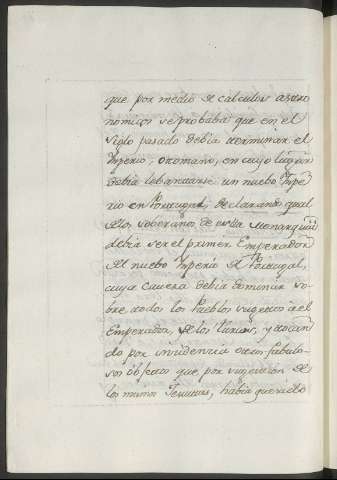 que por medio de calculos astro
nomicos se probaba que en el
Siglo pasado debia terminar el
Imperio, Otomano, en cuyo lugar
debia lebantarse un nuebo Impe
rio en Portugal, declarando qual
de los soberanos de esta Monarquia
debia ser el primer Emperador
del nuebo Imperio de Portugal,
cuya Cavera debia dominar so-
bre todos los Pueblos sugetos a el
Emperador, de los Turcos, y tocan
do por insidencia otros fabulo-
sos objetos que, por sugestion de
los mismos Jesuitas, habia querido